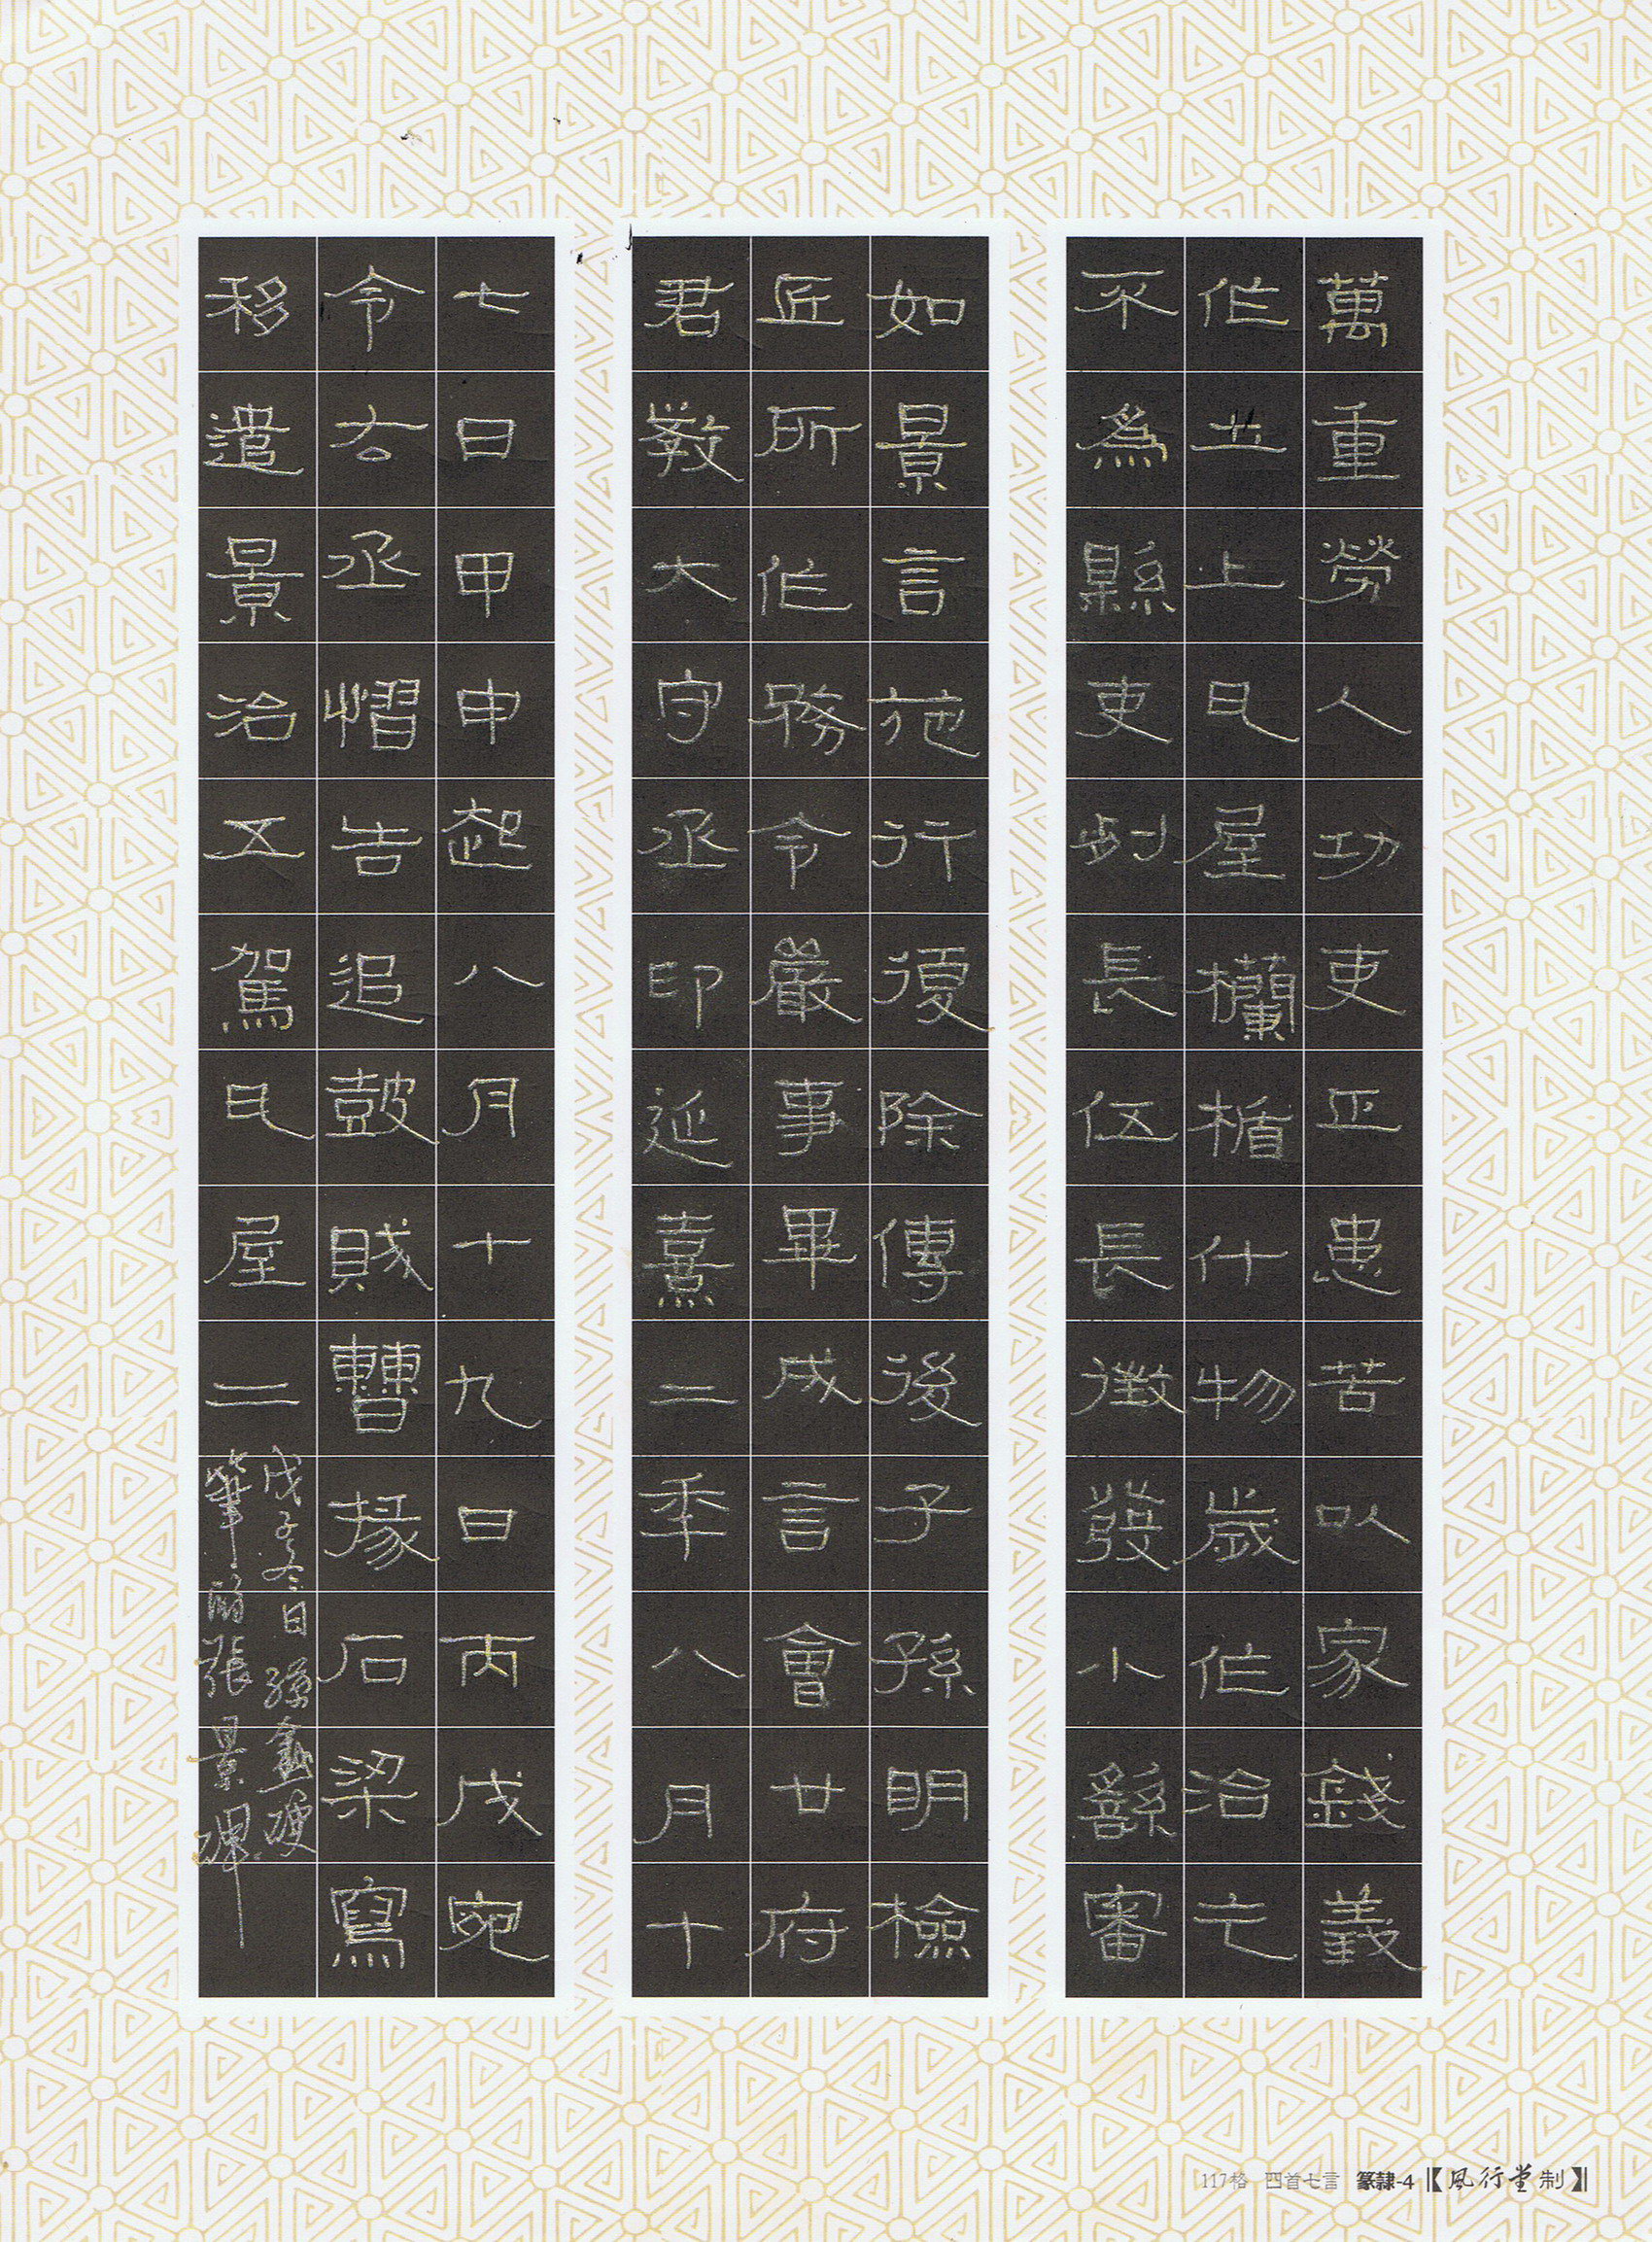 萬重勞人功吏正患苦以家錢義
作土上瓦屋欄楯什物歲作治亡
不為縣吏列長伍長徵發小繇審
如景言施行復除傳後子孫明檢
匠所作務令嚴事畢成言會廿府
君敎大守丞印延熹二年八月十
七日甲申起八月十九日丙戌宛
令右丞慴告追鼓賊曹掾石梁寫
移遣景治五駕瓦屋二
戊子冬日孫鑫硬
筆臨張景碑
117格 四首七言 篆隸-4【風行堂制】